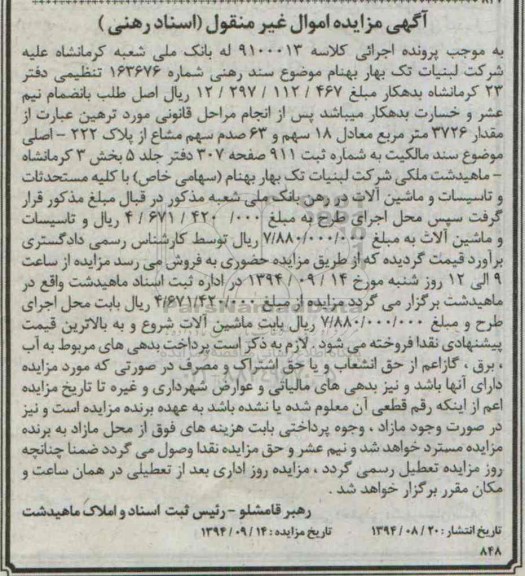 آگهی مزایده اموال غیر منقول (اسناد رهنی)
به موجب پرونده اجرائی کلاسه ۹۱۰۰۰۱۳ له بانک ملی شعبه کرمانشاه علیه
شرکت لبنیات تک بهار بهنام موضوع سند رهنی شماره ۱۶۳۶۷۶ تنظیمی دفتر
۲۳ کرمانشاه بدهکار مبلغ ۴۶۷ / ۱۱۲ / ۲۹۷ / ۱۲ ریال اصل طلب بانضمام نیم
عشر و خسارت بدهکار میباشد پس از انجام مراحل قانونی مورد ترهین عبارت از
مقدار ۳۷۲۶ متر مربع معادل ۱۸ سهم و ۶۳ صدم سهم مشاع از پلاک ۲۲۲ – اصلی
موضوع سند مالکیت به شماره ثبت ۹۱۱ صفحه ۳۰۷ دفتر جلد ۵ بخش ۳ کرمانشاه
– ماهیدشت ملکی شرکت لبنیات تک بهار بهنام (سهامی خاص) با کلیه مستحدثات
و تاسیسات و ماشین آلات در رهن بانک ملی شعبه مذکور در قبال مبلغ مذکور قرار
گرفت سپس محل اجرای طرح به مبلغ ۰۰۰/ ۴۲۰ / ۶۷۱ / ۴ ریال و تاسیسات
و ماشین آلات به مبلغ ۷/۸۸۰/۰۰۰/۰۰۰ ریال توسط کارشناس رسمی دادگستری
برآورد قیمت گردیده که از طریق مزایده حضوری به فروش می رسد مزایده از ساعت
۹ الی ۱۲ روز شنبه مورخ ۱۴ / ۰۹ / ۱۳۹۴ در اداره ثبت اسناد ماهیدشت واقع در
ماهیدشت برگزار می گردد مزایده از مبلغ ۴/۶۷۱/۴۲۰/۰۰۰ ریال بابت محل اجرای
طرح و مبلغ ۷/۸۸۰/۰۰۰/۰۰۰ ریال بابت ماشین آلات شروع و به بالاترین قیمت
پیشنهادی نقدا فروخته می شود . لازم به ذکر است پرداخت بدهی های مربوط به آب
، برق ، گاز اعم از حق انشعاب و یا حق اشتراک و مصرف در صورتی که مورد مزایده
دارای آنها باشد و نیز بدهی های مالیاتی و عوارض شهرداری و غیره تا تاریخ مزایده
اعم از اینکه رقم قطعی آن معلوم شده یا نشده باشد به عهده برنده مزایده است و نیز
در صورت وجود مازاد ، وجوه پرداختی بابت هزینه های فوق از محل مازاد به برنده
مزایده مسترد خواهد شد و نیم عشر و حق مزایده نقدا وصول می گردد ضمنا چنانچه
روز مزایده تعطیل رسمی گردد ، مزایده روز اداری بعد از تعطیلی در همان ساعت و
مکان مقرر برگزار خواهد شد .
رهبر قامشلو – رئیس ثبت اسناد و املاک ماهیدشت
تاریخ انتشار : ۲۰ / ۰۸ / ۱۳۹۴ تاریخ مزایده : ۱۴ / ۰۹ / ۱۳۹۴
۸۴۸